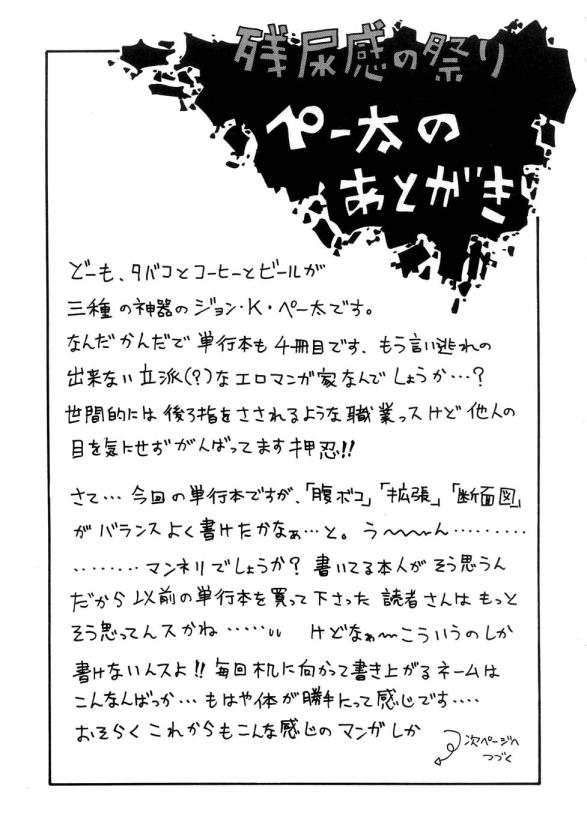 残尿感の祭り
ペー太の
あとがき
どーも、タバコとコーヒーとビールが
三種の神器のジョン・K・ペー太です。
なんだかんだで単行本も4冊目です、もう言い逃れの
出来ない立派(?)なエロマンガ家なんでしょうか…?
世間的には後ろ指をさされるような職業っスけど他人の
目を気にせずがんばってます押忍!!
さて…今回の単行本ですが、「腹ボコ」「拡張」「断面図」
がバランスよく書けたかなぁ…と。う〜〜〜ん………
………マンネリでしょうか?書いてる本人がそう思うん
だから以前の単行本を買って下さった読者さんはもっと
そう思ってんスかね……い けどなぁ〜こういうのしか
書けないんスよ!!毎回机に向かって書き上がるネームは
こんなんばっか…もはや体が勝手にって感じです….
おそらくこれからもこんな感じのマンガしか
次ページへ
つづく